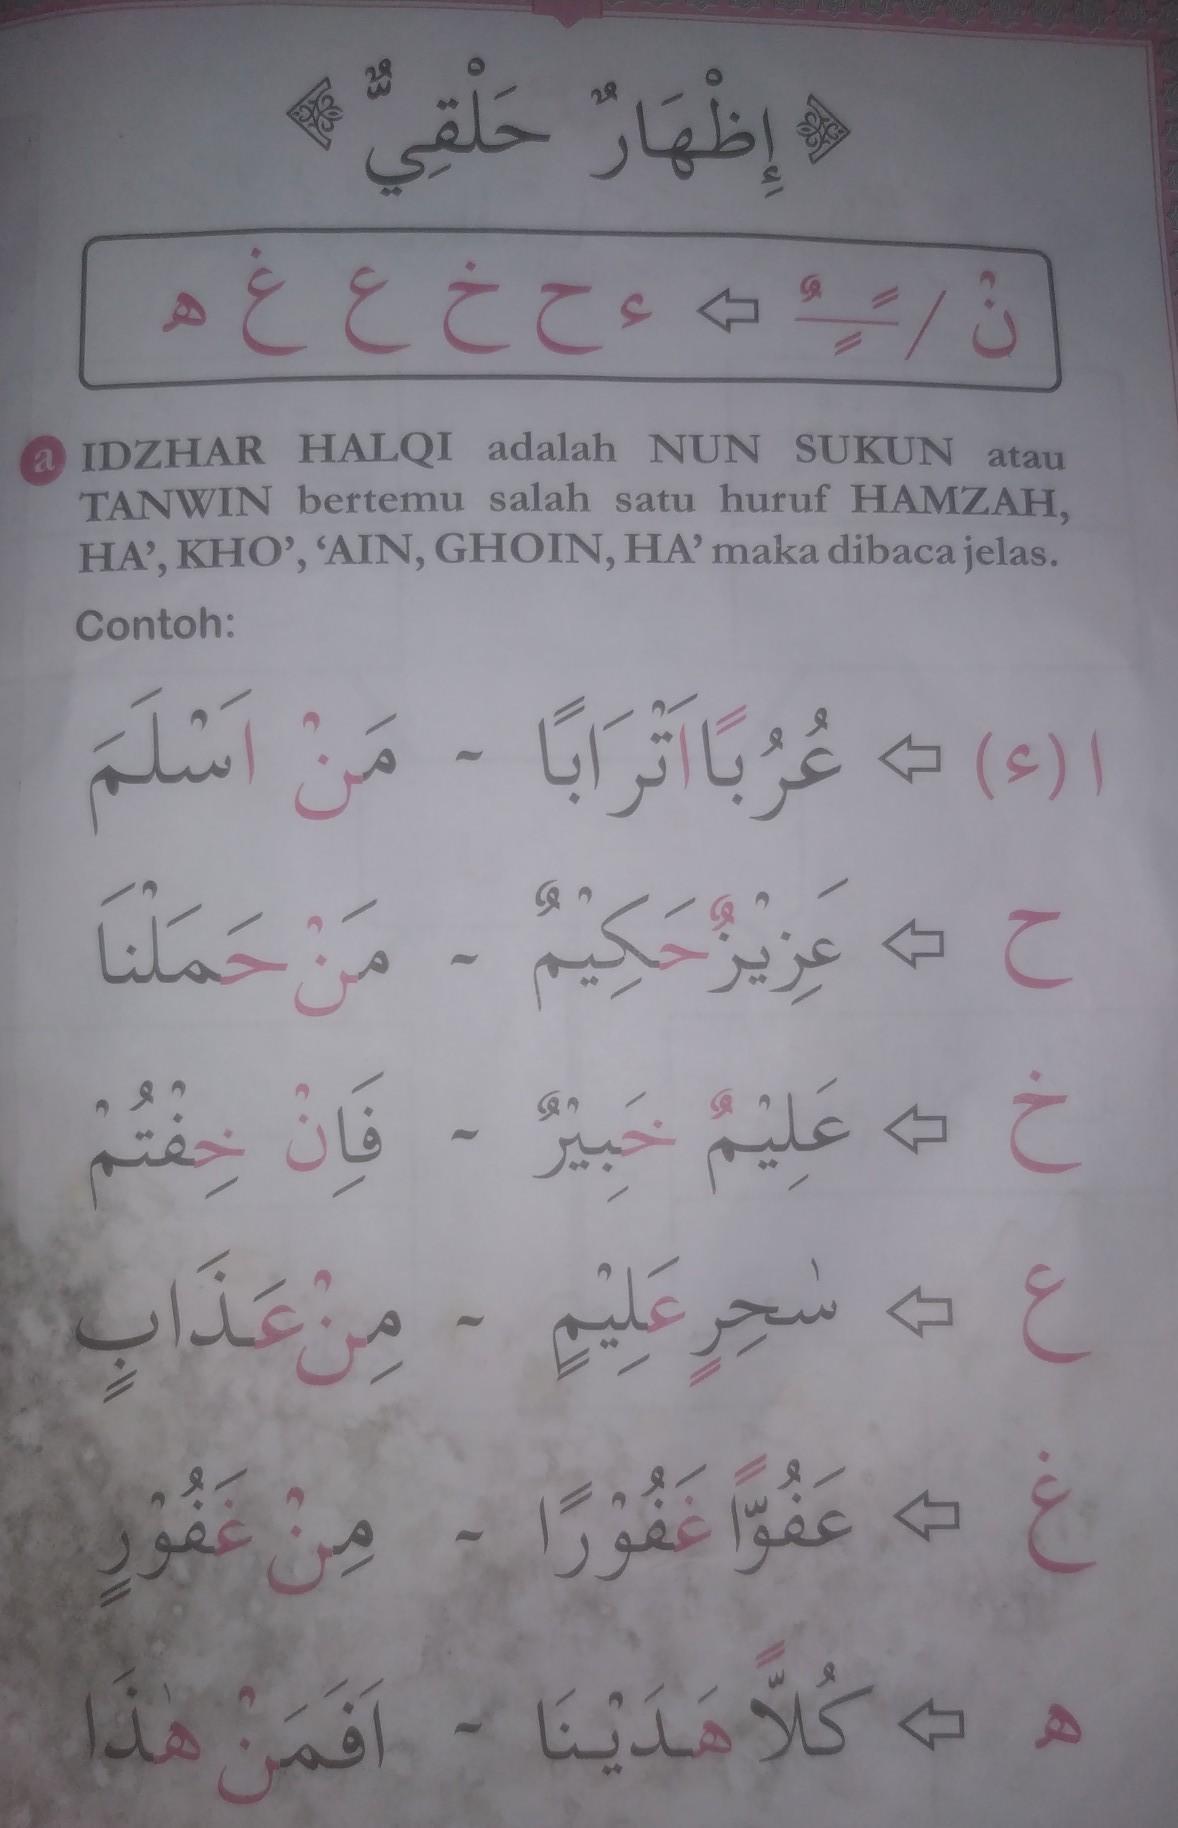 ﴿ إِظْهَارٌ حَلْقِيٌّ ﴾
نْ / ـًـٍـٌ ⇦ ء ح خ ع غ ه
a IDZHAR HALQI adalah NUN SUKUN atau
TANWIN bertemu salah satu huruf HAMZAH,
HA’, KHO’, ‘AIN, GHOIN, HA’ maka dibaca jelas.
Contoh:
ا (ء) ⇦ عُرُبًا اَتْرَابًا - مَنْ اَسْلَمَ
ح ⇦ عَزِيْزٌ حَكِيْمٌ - مَنْ حَمَلْنَا
خ ⇦ عَلِيْمٌ خَبِيْرٌ - فَاِنْ خِفْتُمْ
ع ⇦ سٰحِرٍ عَلِيْمٍ - مِنْ عَذَابٍ
غ ⇦ عَفُوًّا غَفُوْرًا - مِنْ غَفُوْرٍ
ه ⇦ كُلًّا هَدَيْنَا - اَفَمَنْ هٰذَا